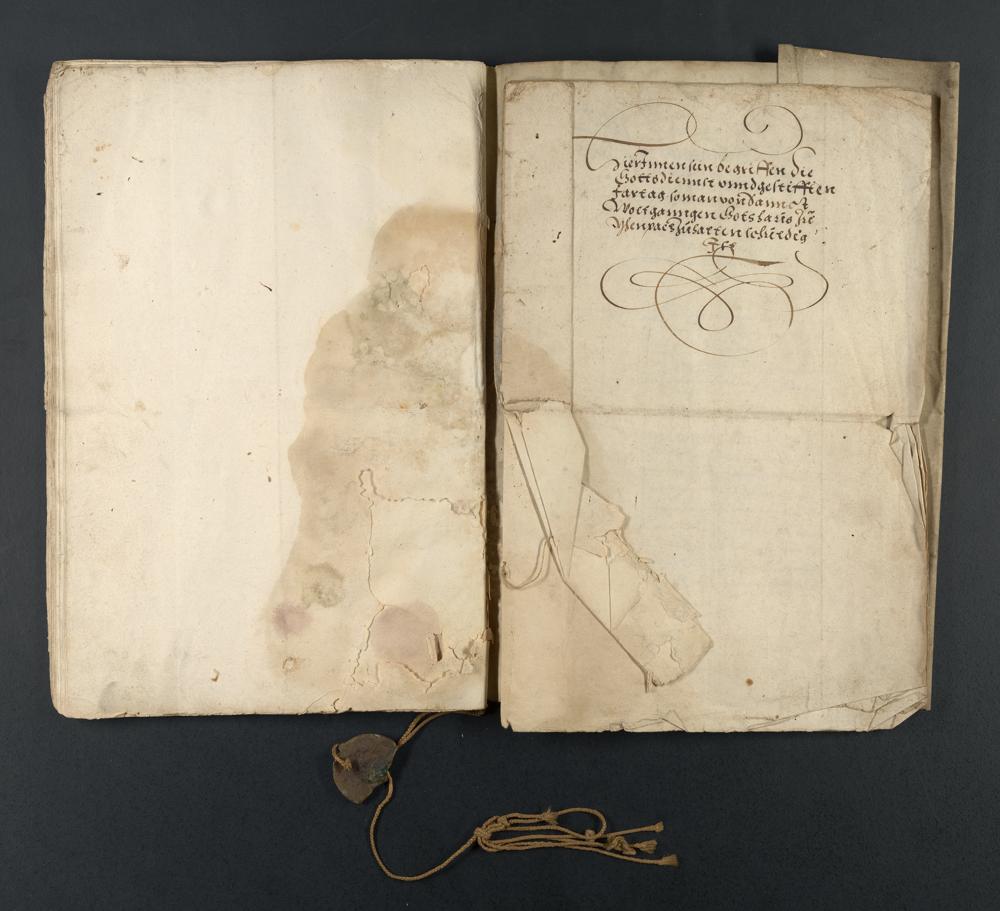 HierJnnen sein begriffen die
Gottsdiennst vnnd gestifften
Jartag so man von Sannct
Wolfganngen Gotshaus zu
zuhalten schuldig
Jst